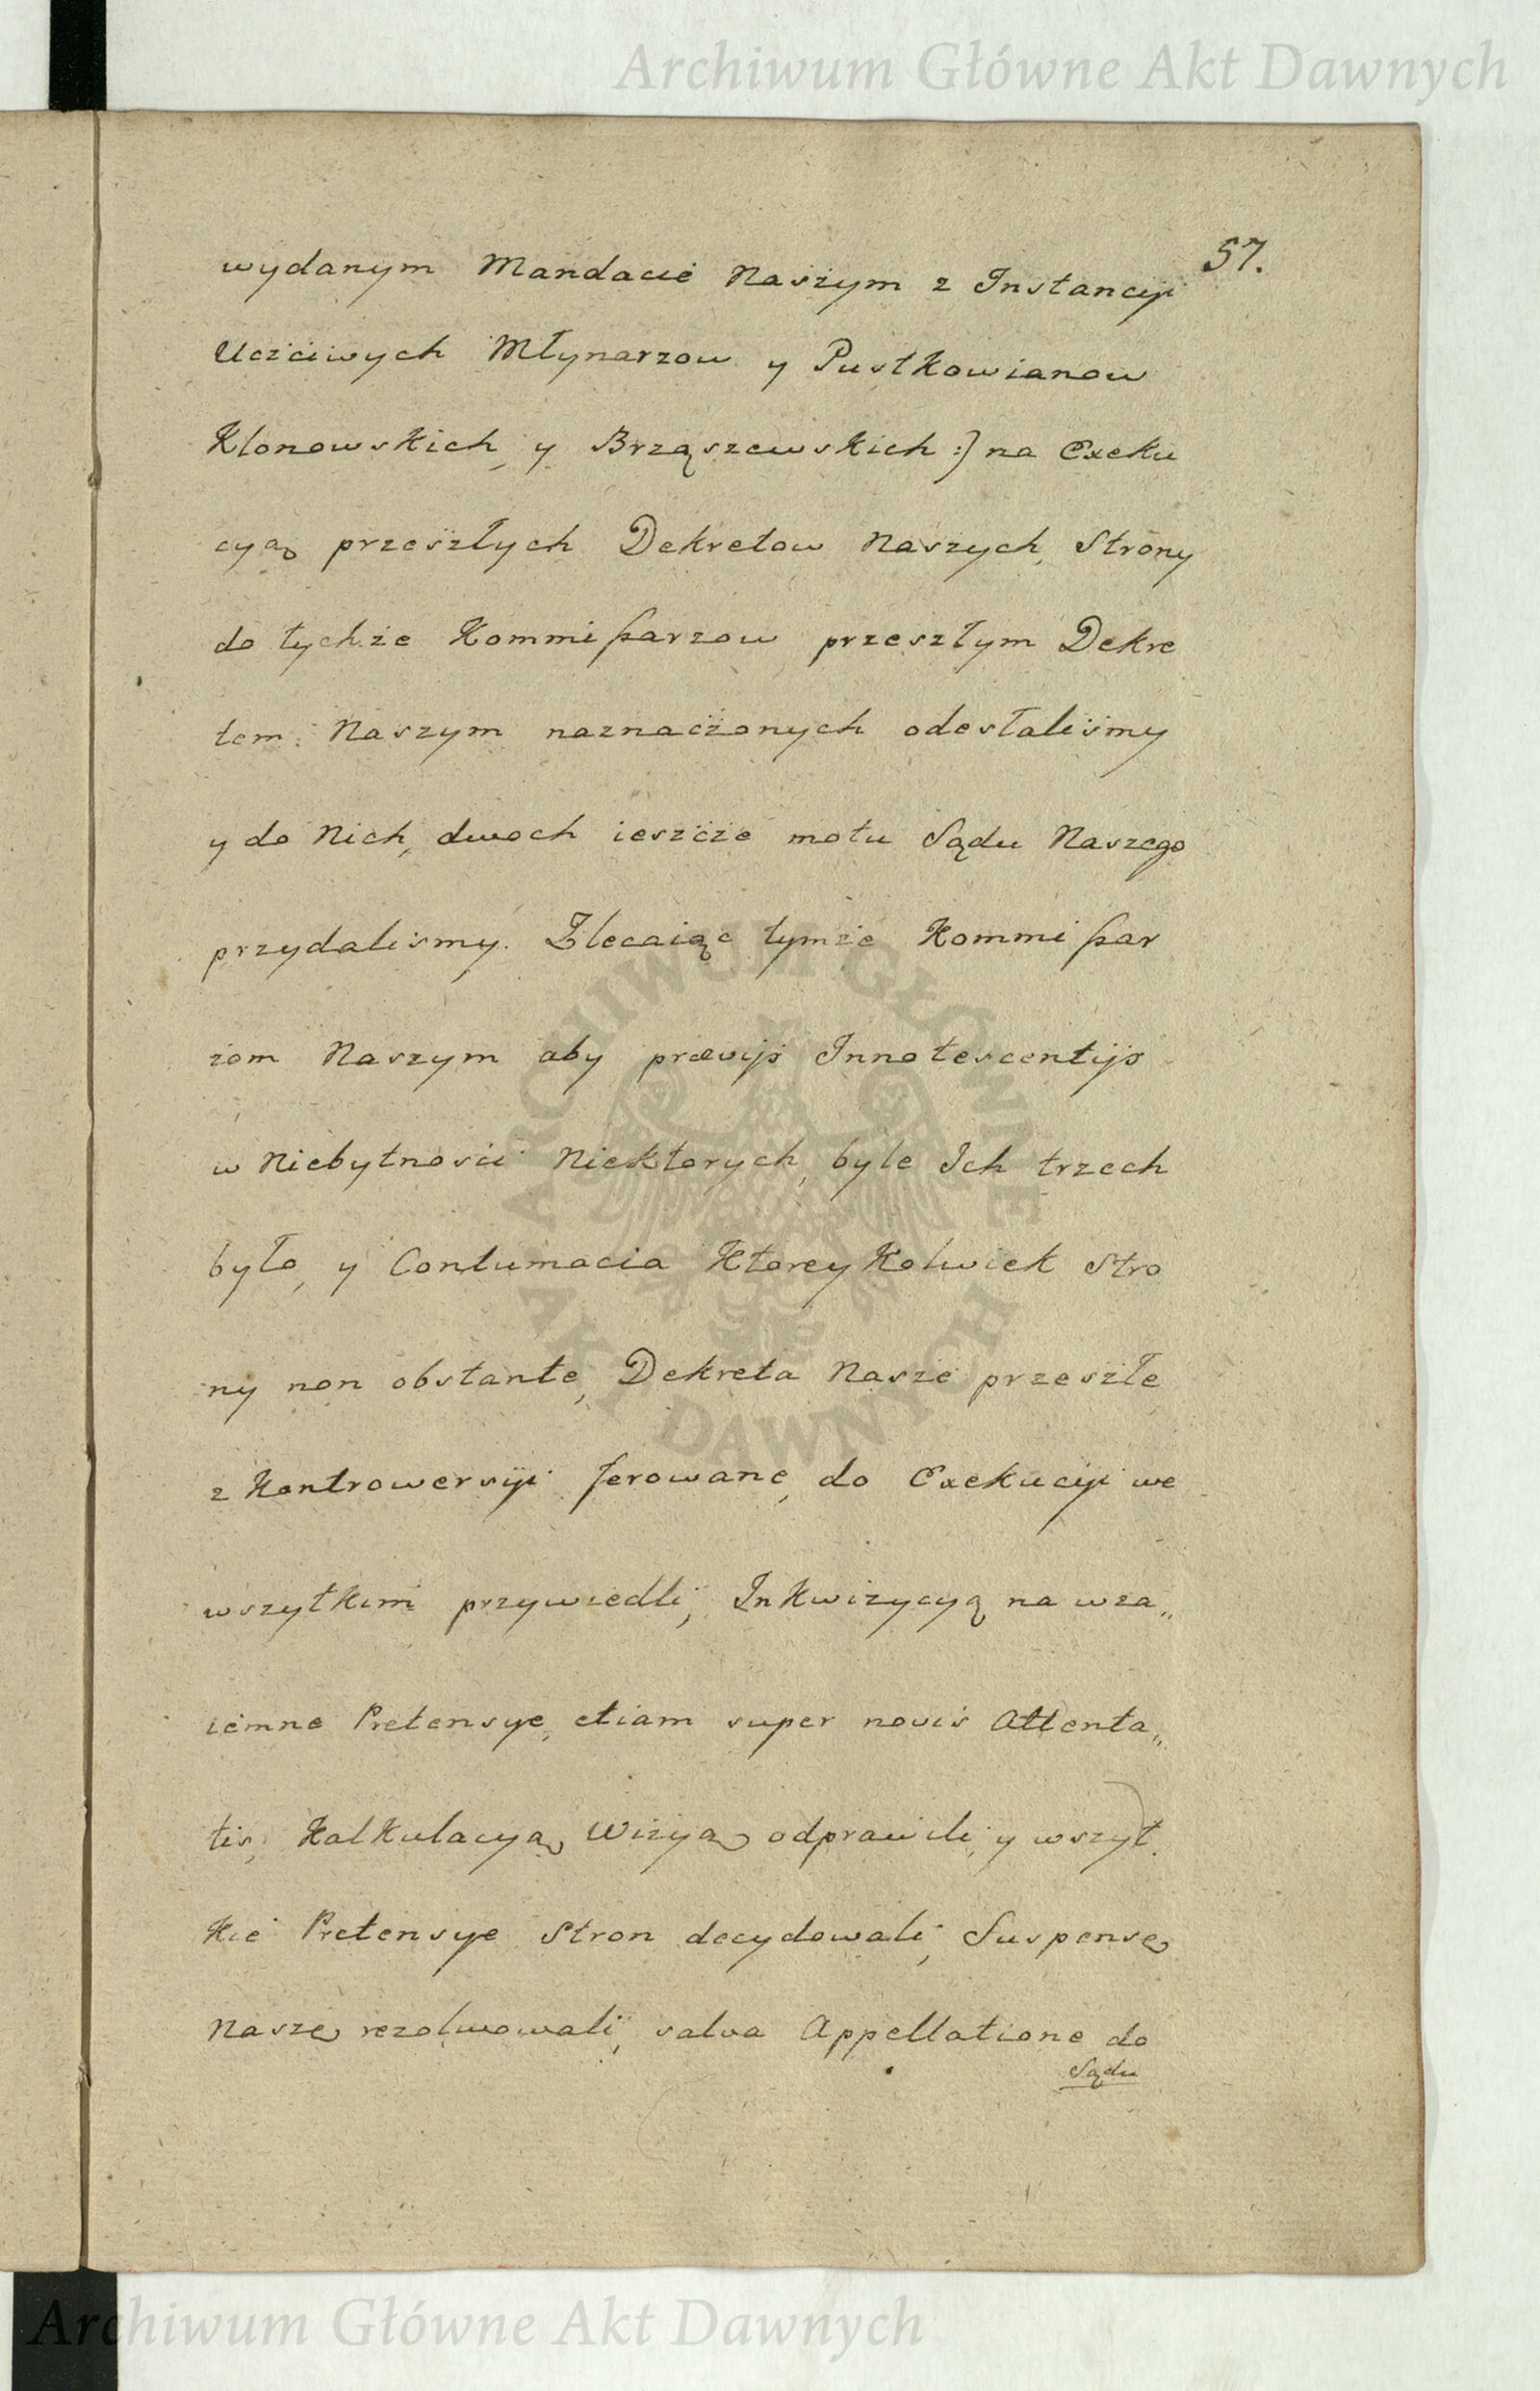 Archiwum Główne Akt Dawnych
57.
wydanym Mandacie Naszym z Instancyi
Uczciwych Młynarzow y Pustkowianow
Klonowskich y Brząszewskich :] na Exeku
cyą przeszłych Dekretow Naszych, Strony
do tychże Kommißarzow przeszłym Dekre
tem Naszym naznaczonych odesłaliśmy
y do Nich, dwoch ieszcze motu Sądu Naszego
przydaliśmy. Zlecaiąc tymże Kommißar
zom Naszym aby prævijs Innotescentijs
w Niebytności Niektorych, byle Ich trzech
było, y Contumacia Ktorey Kolwiek Stro
ny non obstante, Dekreta Nasze przeszłe
z Kontrowersyi ferowane, do Exekucyi we
wszytkim przywiedli, Inkwizycyą na wza„
iemne Pretensye, etiam super novis Attenta„
tis, Kalkulacyą, Wizyą odprawili, y wszyt
kie Pretensye Stron decydowali, Suspensę
Naszę rezolwowali, salva Appellatione do
Sądu
ARCHIWUM GŁÓWNE
AKT DAWNYCH
Archiwum Główne Akt Dawnych